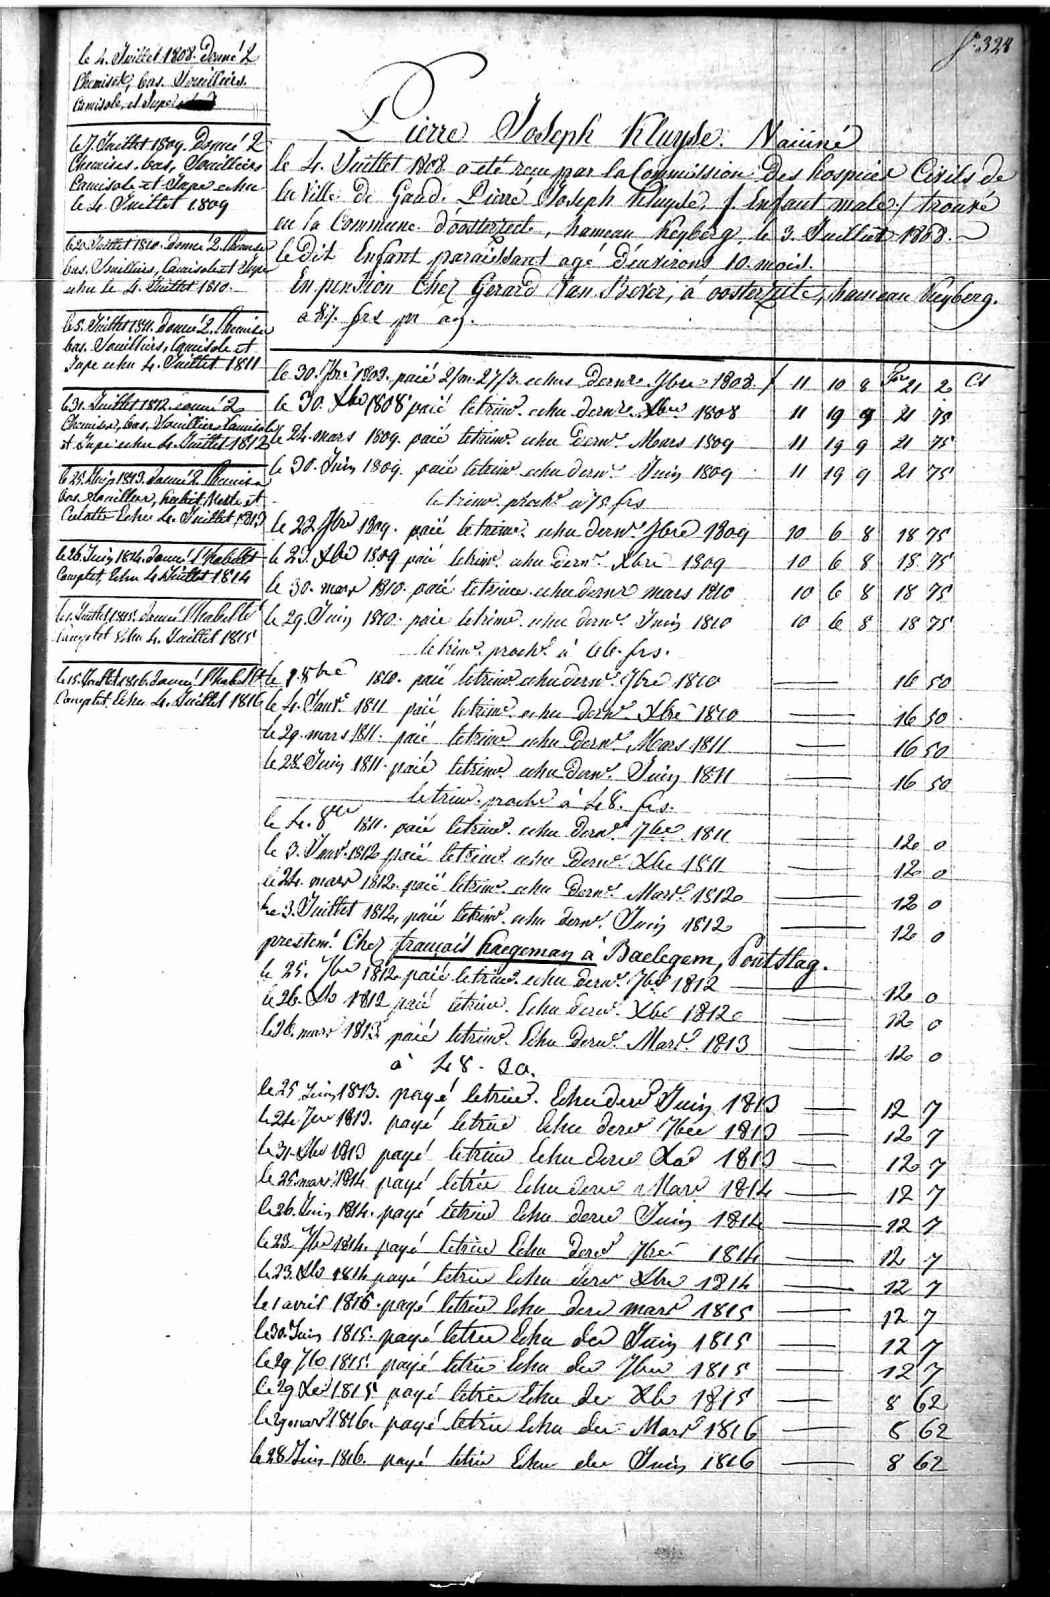 f° 328
le 4. Juillet 1808. Donné 2
Chemises, bas, Souilliers.
Camisole, et Jupe
le 7. Juillet 1809. Donné 2
Chemises. bas, Souilliers
Camisole et Jupe echu
le 4. Juillet 1809
le 20. Juillet 1810. donné 2. Chemise
bas. Souilliers, Camisole et Jupe
echu le 4. Juillet 1810.
le 5. Juillet 1811. donné 2. Chemise
bas. Souilliers, Camisole et
Jupe echu 4. Juillet 1811
le 31. Juillet 1812. donné 2
Chemise, bas, Souilliers Camisole
et Jupe echu 4. Juillet 1812
le 25. Juin 1813. Donné 2 Chemise
bas souillier, habit, Veste et
Culotte Echu 4. Juillet 1813
le 26. Juin 1814. donné l'habillt
Complet, Echu 4 Juillet 1814
le 1. Juillet 1815. donné l'habillt
Complet Echu 4. Juillet 1815
le 15. Juillet 1816. donné l'habillt
Complet. Echu 4. Juillet 1816
Pierre Joseph Kluyse.
le 4. Juillet 1808 a eté reçu par la Commission Des hospices Civils de
la Ville De Gand. Pierre Joseph Kluyse, /. Enfant male ./ trouvé
en la Commune d'oosterzeele, hameau Keyberg, le 3. Juillet 1808. —
le Dit Enfant paraissant agé d'environs 10. mois.
En pension Chez Gerard Van , à oosterzeele, hameau Keyberg.
à 87. frs pr an.
le 30. 7bre 1808. paié 2/m. 27/3. echus dernr 7bre 1808 / 11 10 8 21 2 Cs
le 30. Xbre 1808 paié le trimr. echu dernr. Xbre 1808 11 19 9 21 75
le 24. mars 1809. paié le trimr. echu dernr. Mars 1809 11 19 9 21 75
le 30. Juin 1809. paié le trimr. echu dernr. Juin 1809 11 19 9 21 75
le trimr. prochn à 75 frs
le 22 7bre 1809. paié le trimr. echu dernr. 7bre 1809 10 6 8 18 75
le 23. Xbre 1809 paié le trimr. echu dernr. Xbre 1809 10 6 8 18 75
le 30. mars 1810. paié le trimre echu dernr mars 1810 10 6 8 18 75
le 29. Juin 1810. paié le trimr. echu dernr. Juin 1810 10 6 8 18 75
le trimr. prochn. à 66. frs.
le 1. 8bre 1810. paié le trimr echu dernr. 7bre 1810 — 16 50
le 4. Janvr. 1811 paié le trimr. echu dernr. Xbre 1810 — 16 50
le 29. mars 1811. paié le trimr. echu dernr. Mars 1811 — 16 50
le 28. Juin 1811. paié le trimr. echu dernr. Juin 1811 — 16 50
le trimr. prochn à 48. frs.
le 4. 8bre 1811. paié le trimr. echu dernr. 7bre. 1811 — 12 0
le 3. Janv. 1812 paié le trimr. echu dernr. Xbre 1811 — 12 0
le 24. mars 1812. paié le trimr. echu dernr. Mars. 1812 — 12 0
le 3. Juillet 1812, paié le trimr. echu dernr. Juin 1812 — 12 0
presentmt. Chez français haegeman à Baelegem,
le 25. 7bre 1812. paié le trimr. echu dernr. 7bre 1812 — 12 0
le 26. Xbre 1812 paié le trimr. Echu dernr. Xbre 1812 — 12 0
le 26. mars 1813 paié le trimr. Echu dernr. Mars. 1813 — 12 0
à 48. 20.
le 25 Juin 1813. payé le trim. Echu der Juin 1813 — 12 7
le 24 7bre 1813. payé le trim Echu der 7bre 1813 — 12 7
le 31. Xbre 1813 payé le trim Echu der Xbre 1813 — 12 7
le 25. mars 1814 payé le trim Echu der Mars 1814 — 12 7
le 26. Juin 1814. payé le trim Echu der Juin 1814 — 12 7
le 23. 7bre 1814. payé le trim Echu der 7bre 1814 — 12 7
le 23. Xbre 1814 payé le trim Echu der Xbre 1814 — 12 7
le 1 avril 1816. payé le trim Echu der mars 1815 — 12 7
le 30. Juin 1815. payé le trim Echu der Juin 1815 — 12 7
le 29 7bre 1815. payé le trim Echu der 7bre 1815 — 12 7
le 29 Xbre 1815 payé le trim Echu der Xbre 1815 — 8 62
le 29 mars 1816. payé le trim Echu der Mars 1816 — 8 62
le 28 Juin 1816. payé le trim Echu der Juin 1816 — 8 62